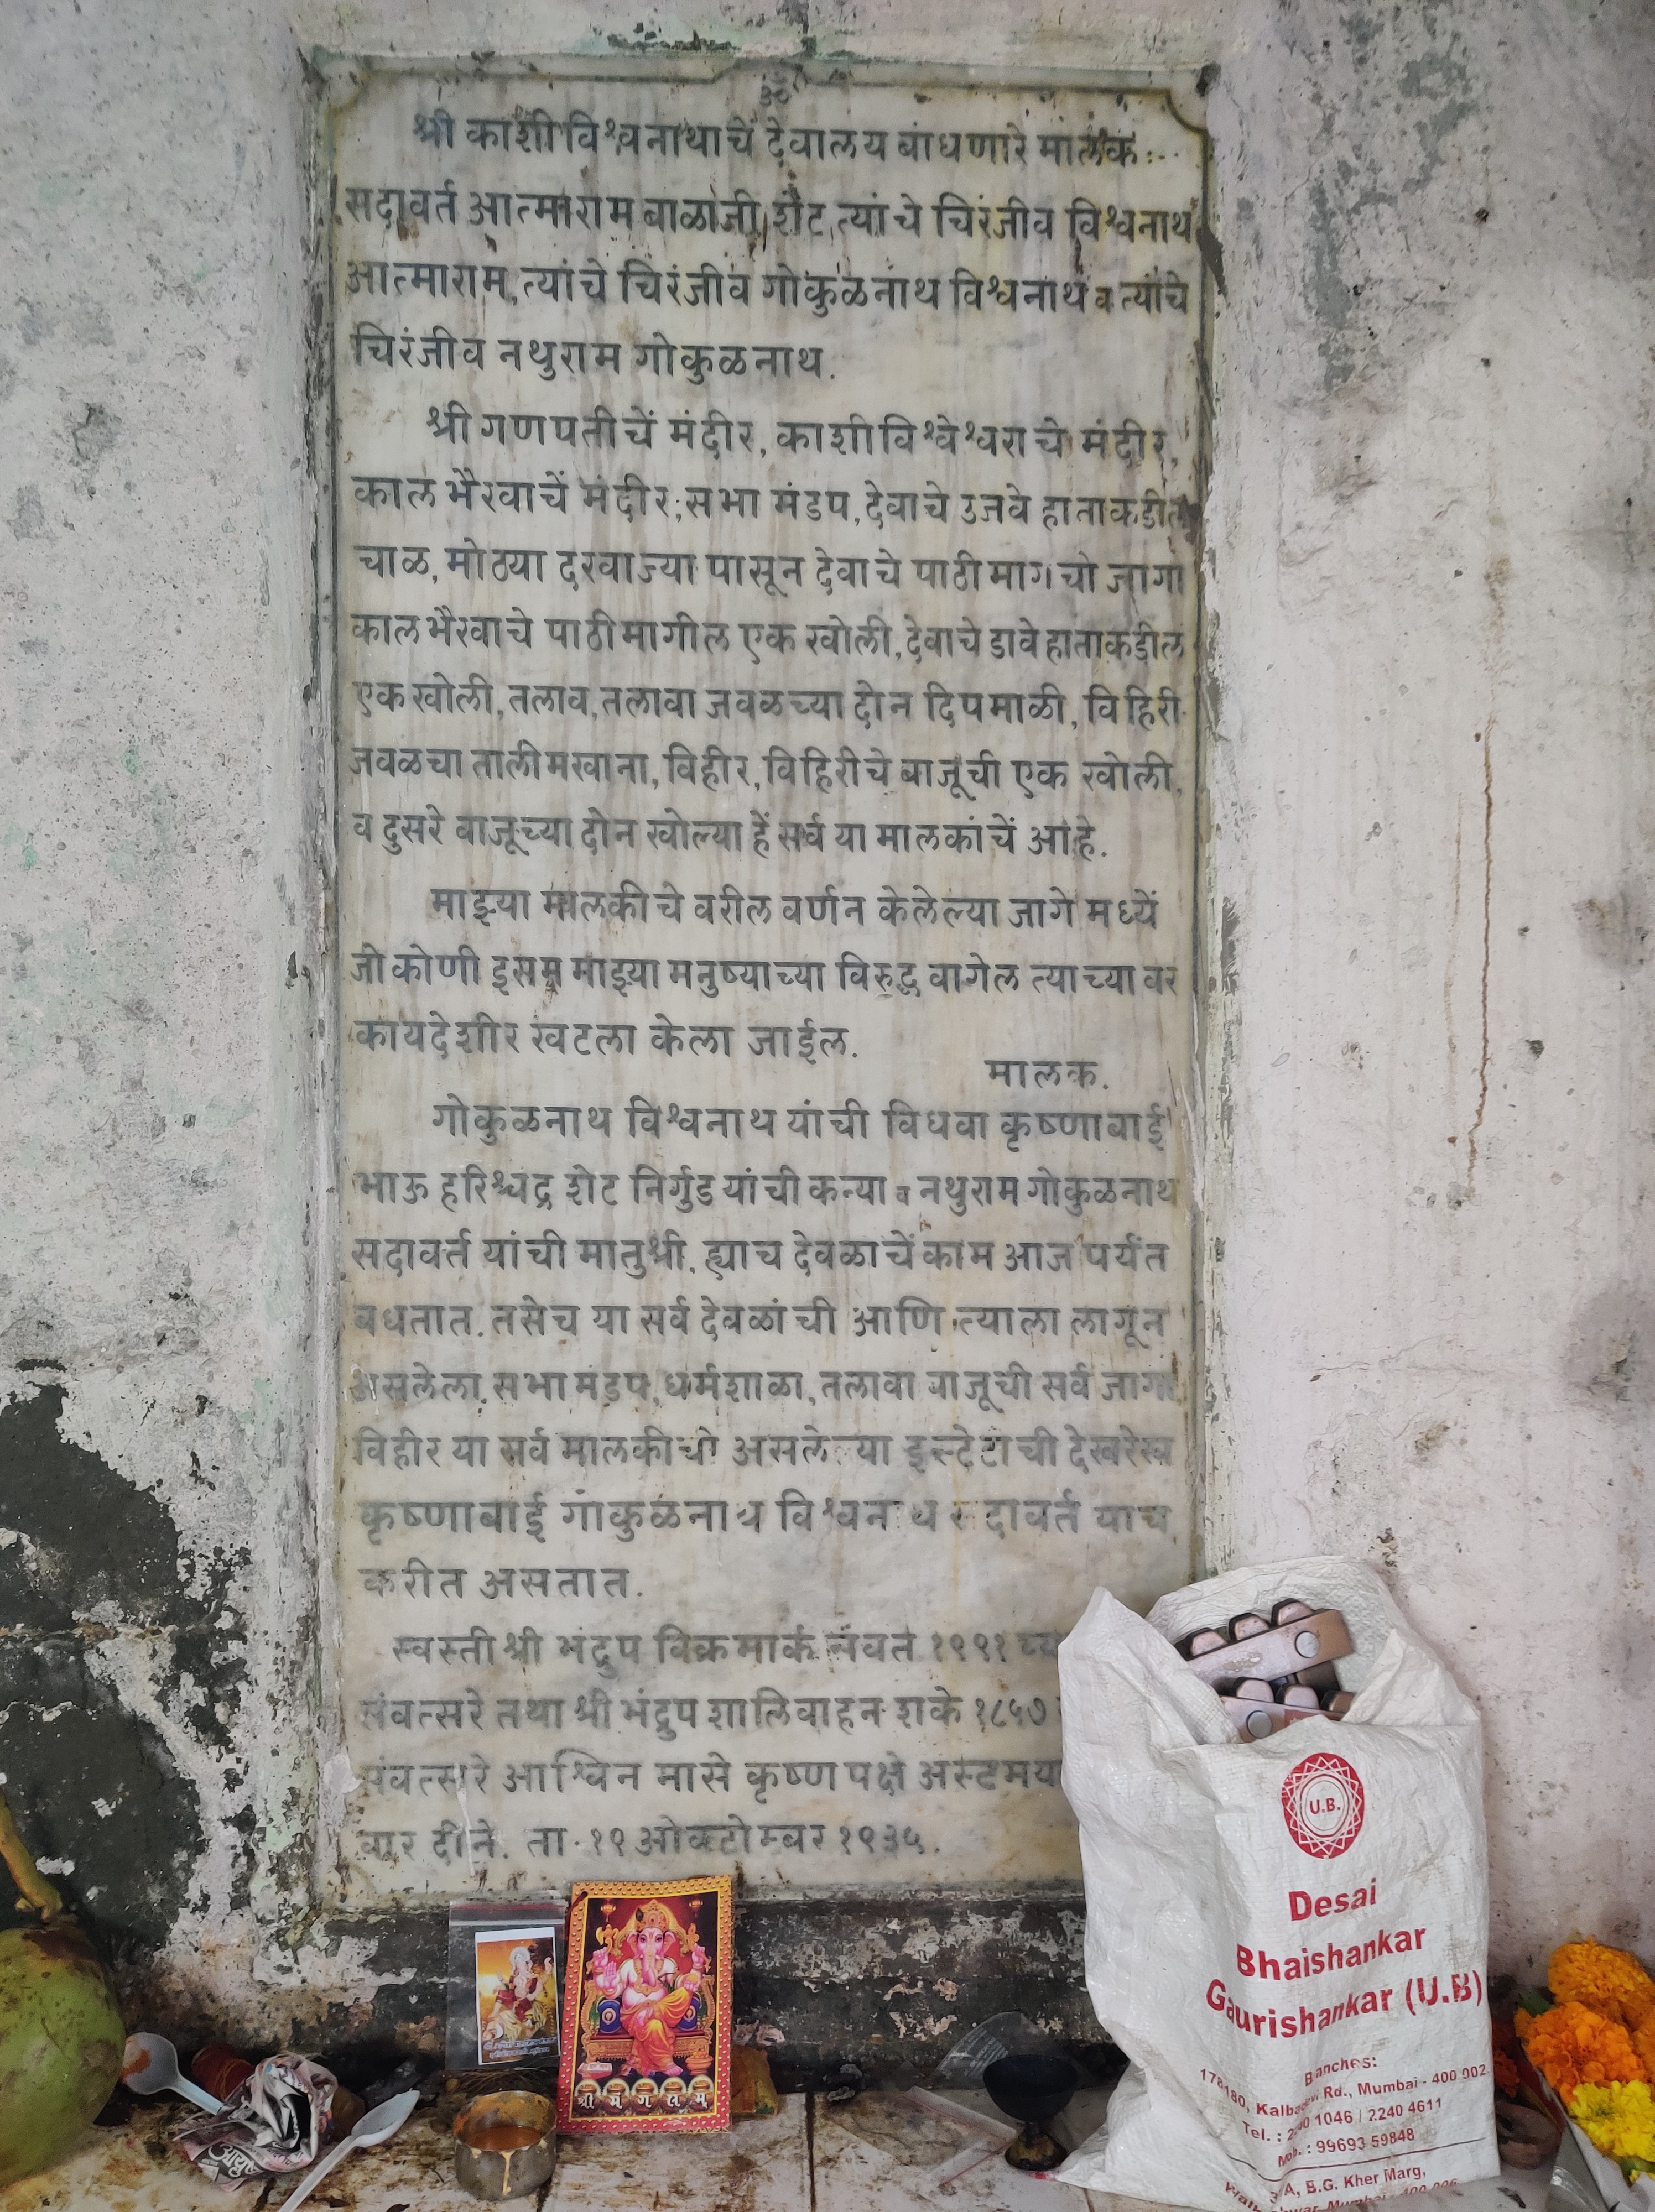 ॐ
श्री काशीविश्वनाथाचे देवालय बांधणारे मालक :--
सदावर्त आत्माराम बाळाजी शेट त्यांचे चिरंजीव विश्वनाथ
आत्माराम, त्यांचे चिरंजीव गोकुळनाथ विश्वनाथ व त्यांचे
चिरंजीव नथुराम गोकुळनाथ.
श्री गणपतीचें मंदीर, काशीविश्वेश्वराचे मंदीर,
काल भैरवाचें मंदीर, सभा मंडप, देवाचे उजवे हाताकडील
चाळ, मोठया दरवाज्या पासून देवाचे पाठीमागचो जागा
काल भैरवाचे पाठीमागील एक खोली, देवाचे डावे हाताकडील
एक खोली, तलाव, तलावा जवळच्या दोन दिपमाळी, विहिरी
जवळचा तालीमखाना, विहीर, विहिरीचे बाजूची एक खोली,
व दुसरे बाजूच्या दोन खोल्या हें सर्व या मालकांचें आहे.
माझ्या मालकीचे वरील वर्णन केलेल्या जागे मध्यें
जो कोणी इसम माझ्या मनुष्याच्या विरुद्ध वागेल त्याच्या वर
कायदेशीर खटला केला जाईल.
मालक.
गोकुळनाथ विश्वनाथ यांची विधवा कृष्णाबाई
भाऊ हरिश्चद्र शेट निर्गुड यांची कन्या व नथुराम गोकुळनाथ
सदावर्त यांची मातुश्री. ह्याच देवळाचें काम आज पर्यंत
बधतात. तसेच या सर्व देवळांची आणि त्याला लागून
असलेला सभामंडप, धर्मशाळा, तलावा बाजूची सर्व जागा,
विहीर या सर्व मालकीची असलेल्या इस्टेटीची देखरेख
कृष्णाबाई गोकुळनाथ विश्वनाथ सदावर्त याच
करीत असतात.
स्वस्ती श्री भंद्रुप विक्रमार्क संवत १९९१ च्या
संवत्सरे तथा श्री भंद्रुप शालिवाहन शके १८५७
संवत्सरे आश्विन मासे कृष्ण पक्षे अस्टमया
वार दीने. ता. १९ ओक्टोम्बर १९३५.
श्री मं ग ल म्
U.B.
Desai
Bhaishankar
Gaurishankar (U.B)
Branches:
178/180, Kalbadevi Rd., Mumbai - 400 002.
Tel. : 2240 1046 / 2240 4611
Mob. : 99693 59848
3-A, B.G. Kher Marg,
Mumbai - 400 006